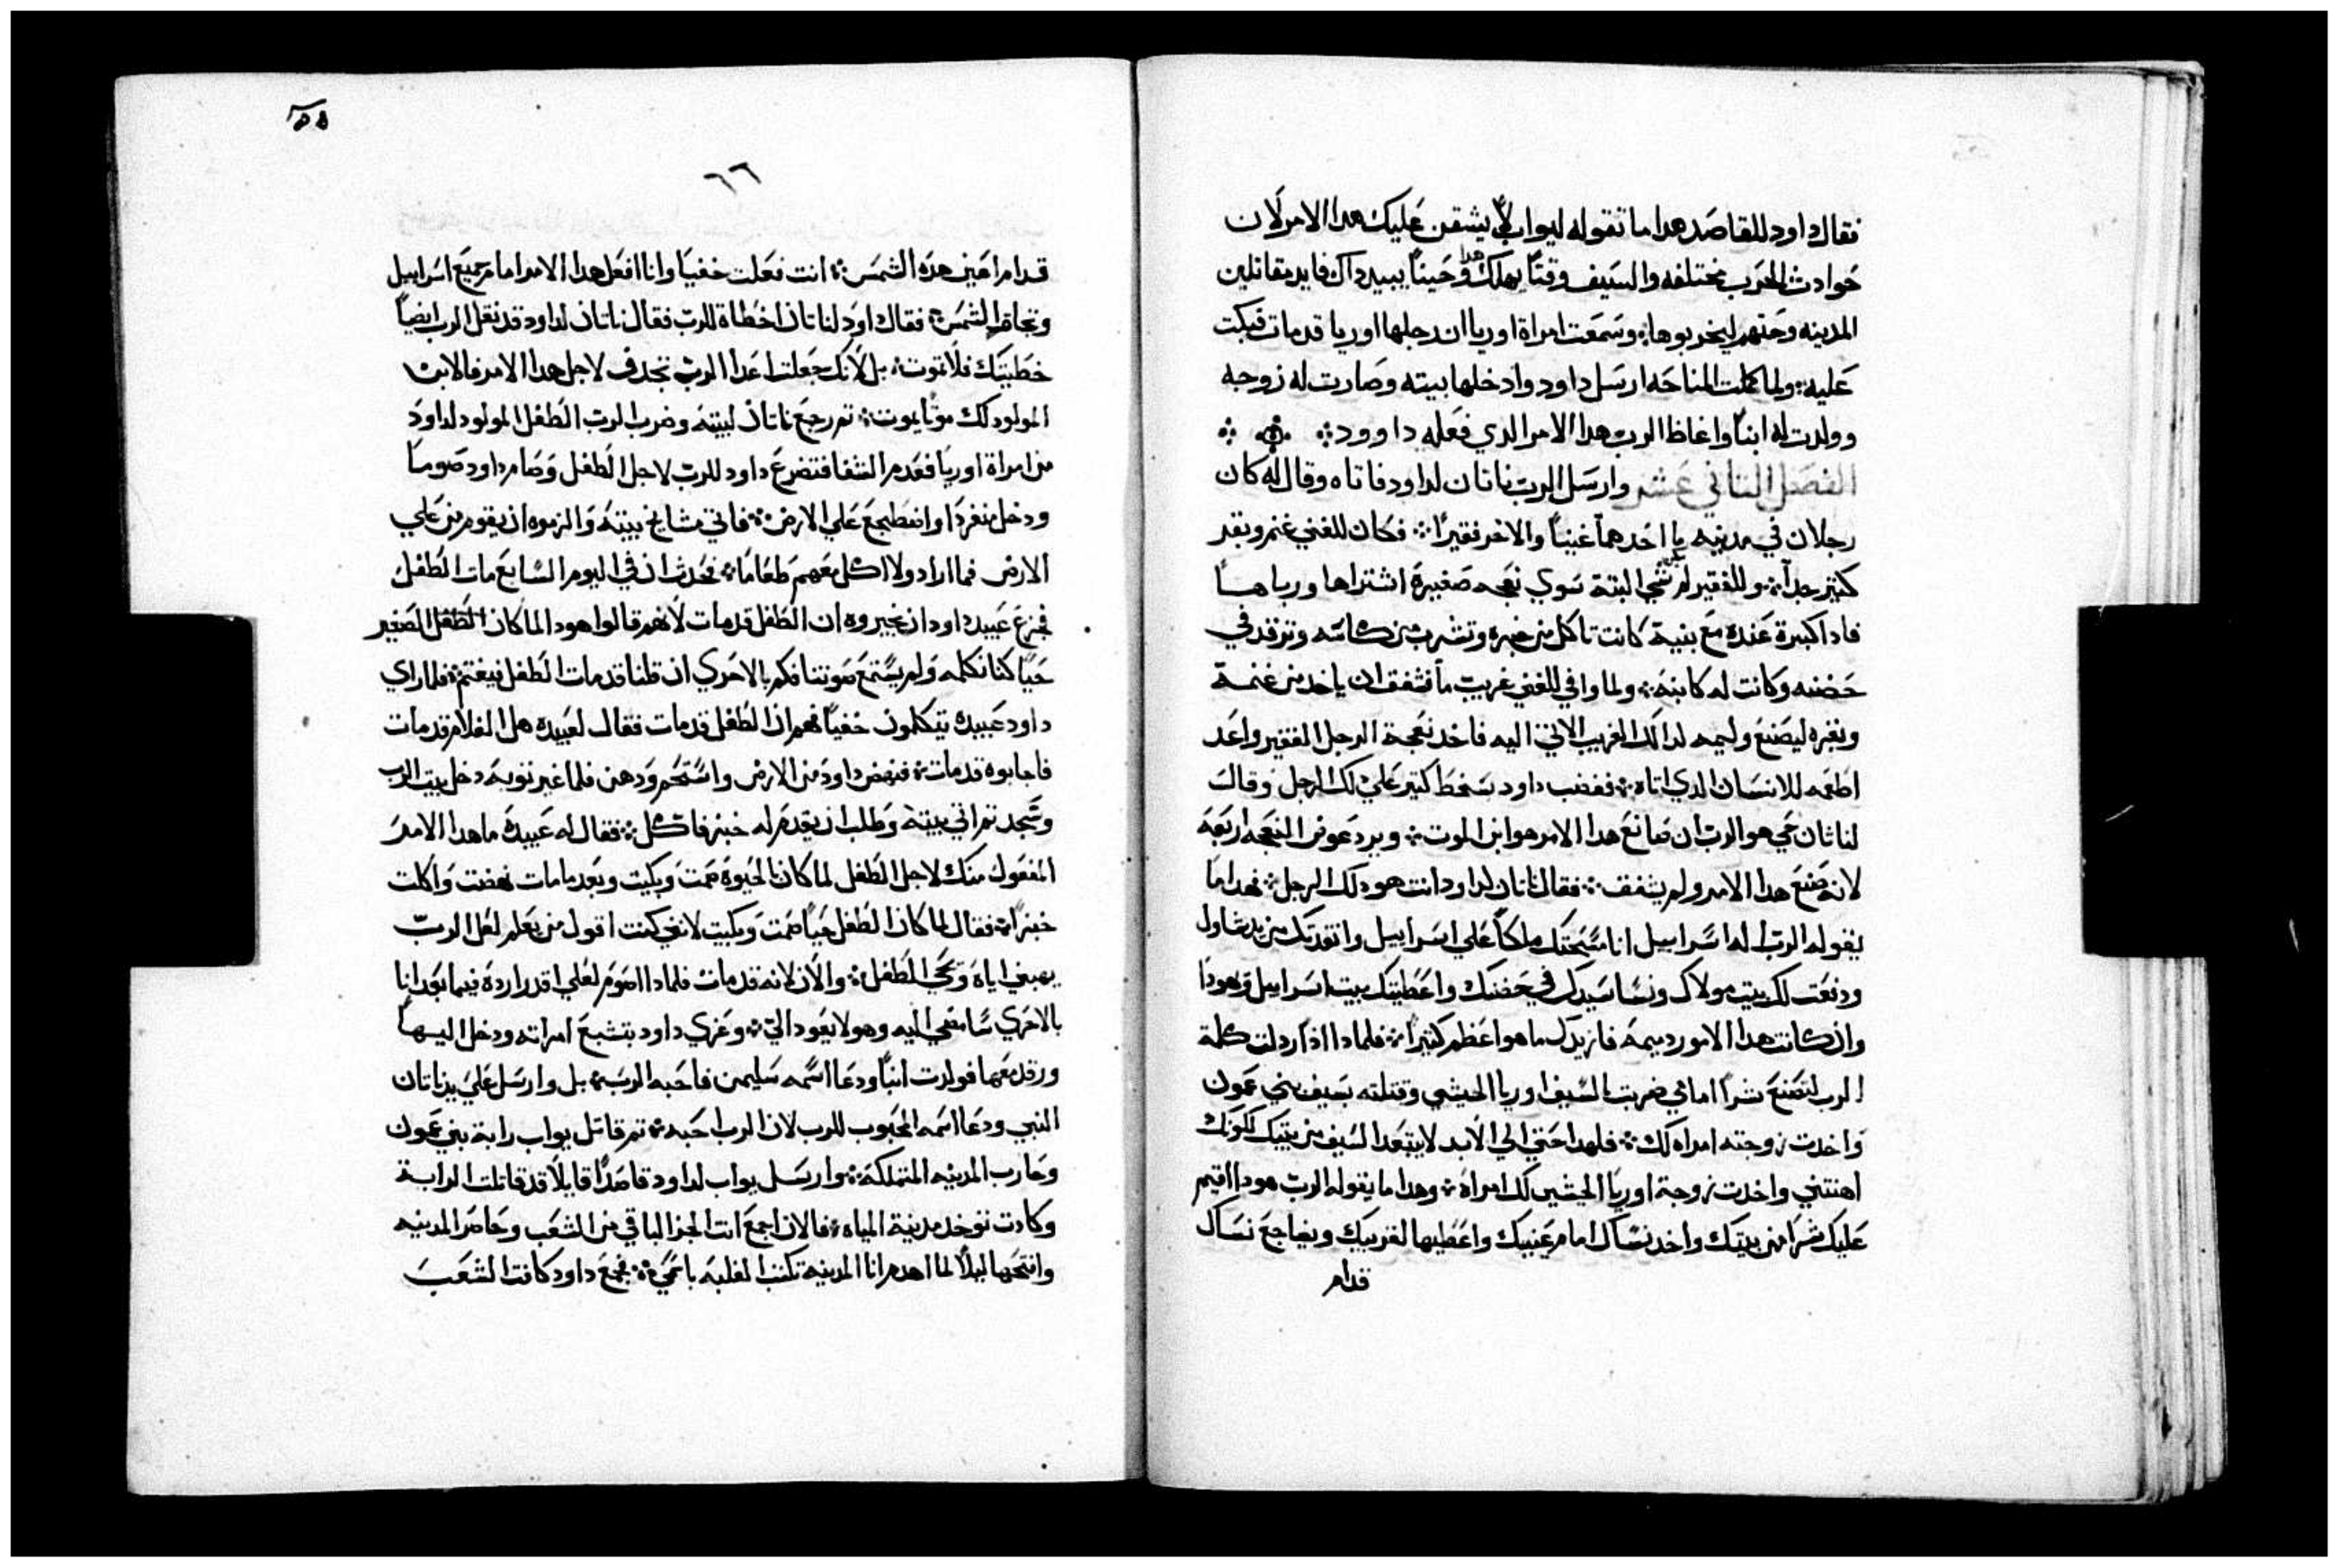 فقال داود للقاصد هدا ما تقوله ليواب لا يشقن عليك هدا الامر لان
حوادث الحرب مختلفه والسيف وقتاً يهلك هدا وحيناً يبيد داك فايد مقاتلين
المدينه وحتهم ليخربوها وسمعت امراة اوريا ان رجلها اوريا قد مات فبكت
عليه ولما كملت المناحه ارسل داود وادخلها بيته وصارت له زوجه
وولدت له ابناً واغاظ الرب هدا الامر الدي فعله داوود
الفصل التاني عشر وارسل الرب ناتان لداود فاتاه وقال له كان
رجلان في مدينه ما احدهما غنياً والاخر فقيراً فكان للغني غنم وبقر
كتير جداً وللفقير لم شي البتة سوي نعجه صغيرة اشتراها ورباها
فاد اكبرة عنده مع بنية كانت تاكل من خبزه وتشرب من كاسه وترقد في
حضنه وكانت له كابنه ولما وافي للغني غريب ما شفق ان ياخد من غنمة
وبقره ليصنع وليمه لدالك الغريب الاتي اليه فاخد نعجة الرجل الفقير واعد
اطعمه للانسان الدي اتاه فغضب داود بسخط كتير علي لك الرجل وقال
لناثان حي هو الرب ان صانع هدا الامر هو ابن الموت ويرد عوض النعجه اربعه
لانه صنع هدا الامر ولم يشفق فقال ناتان لداود انت هو دلك الرجل فهدا ما
يقوله الرب اله اسراييل انا مسحتك ملكاً علي اسراييل وانقدتك من يد شاول
ودفعت لك بيت مولاك ونسا سيدك في حضنك واعطيتك بيت اسراييل ويهودا
وان كانت هدا الامور دميمه فازيدك ما هو اعظم كتيراً فلمادا اذا ردلت كلمة
الرب لتصنع شراً امامي ضربت بالسيف اوريا الحيثي وقتلته بسيف بني عمون
واخدت زوجته امراه لك فلهدا حتي الي الابد لا يبتعد السيف من بيتك لكونك
اهنتني واخدت زوجة اوريا الحيتي لك امراة وهدا ما يقوله الرب هودا اقيم
عليك شراً من بيتك واخد نساك امام عينيك واعطيها لقريبك ويضاجع نساك
قدام
٦٦
قدام اعين هده الشمس انت فعلت خفيا وانا افعل هدا الامر امام جميع اسراييل
وتجاه الشمس فقال داود لناتان اخطاة للرب فقال ناتان لداود قد نقل الرب ايضاً
خطيتك فلا تموت بل لانك جعلت اعدا الرب تجدف لاجل هدا الامر فالابن
المولود لك موتا يموت تم رجع ناتان لبيته وضرب الرب الطفل المولود لداود
من امراة اوريا فعدم الشفا فتضرع داود للرب لاجل الطفل وصام داود صوماً
ودخل منفرداً وانضطجع علي الارض فاتي مشايخ بيته والزموه ان يقوم من علي
الارض فما اراد ولا اكل معهم طعاما فحدث ان في اليوم السابع مات الطفل
فجزع عبيد داود ان يخبروه ان الطفل قد مات لانهم قالوا هودا لما كان الطفل الصغير
حياً كنا نكلمه ولم يستمع صوتنا فكم بالاحري ان قلنا قد مات الطفل فيغتم فلما راي
داود عبيده يتكلمون خفياً فهم ان الطفل قد مات فقال لعبيده هل الغلام قد مات
فاجابوه قد مات فنهض داود من الارض واستحم ودهن فلما غير توبه دخل بيت الرب
وسجد تم اتي بيته وطلب ان يقدم له خبز فاكل فقال له عبيده ما هدا الامر
المفعول منك لاجل الطفل لما كان الحيوة صمت وبكيت وبعد ما مات نهضت واكلت
خبزاً فقال لما كان الطفل حياً صمت وبكيت لانني كنت اقول من يعلم لعل الرب
يهبني اياه ويحي الطفل والان لانه قد مات فلمادا اصوم لعلي اقدر ارده فيما بعد انا
بالاحري سامضي اليه وهو لا يعود الي وعزي داود بتشبع امراته ودخل اليها
ورقد معها فولدت ابناً ودعا اسمه سليمن فاحبه الرب بل وارسل علي يد ناتان
النبي ودعا اسمه المحبوب للرب لان الرب احبه تم قاتل يواب رابة بني عمون
وحارب المدينه المتملكة وارسل يواب لداود قاصداً قايلا قد قاتلت الرابة
وكادت توخد مدينة المياه فالان اجمع انت الجز الباقي من الشعب وحاصر المدينه
وافتحها ليلا لما اهدم انا المدينه تكتب الغلبه باسمي فجمع داود كافت الشعب